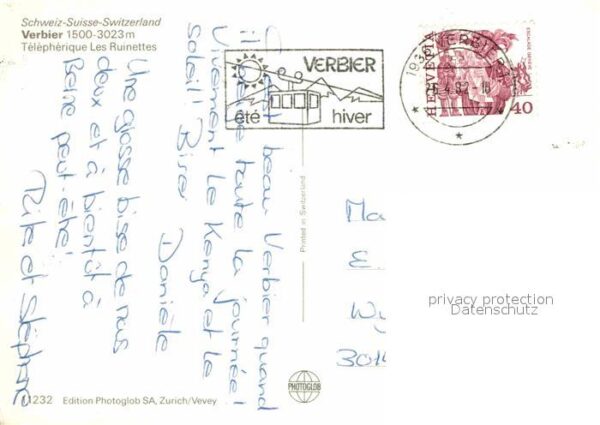 Schweiz-Suisse-Switzerland
Verbier 1500-3023 m
Téléphérique Les Ruinettes
VERBIER
été hiver
1936 VERBIER
26.4.82-18
HELVETIA
40
C'est beau Verbier quand
il neige toute la journée!
Vivement le Kenya et le
soleil! Bises Danièle
Une grosse bise de nous
deux et à bientôt à
Berne peut-être!
et Stéphane
Printed in Switzerland
Ma
E.
W
3014
privacy protection
Datenschutz
PHOTOGLOB
1232 Edition Photoglob SA, Zurich/Vevey